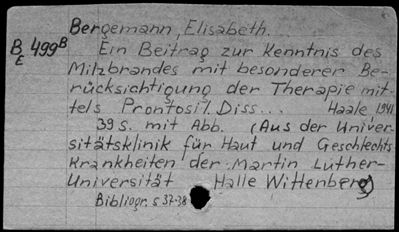 Bergemann, Elisabeth.
B 499B
E
Ein Beitrag zur Kenntnis des
Milzbrandes mit besonderer Be-
rücksichtigung der Therapie mit-
tels Prontosil. Diss... Haale 1941
39 S. mit Abb. (Aus der Univer-
sitätsklinik für Haut und Geschlechts
Krankheiten der Martin Luther-
Universität Halle Wittenberg)
Bibliogr. s 37-38